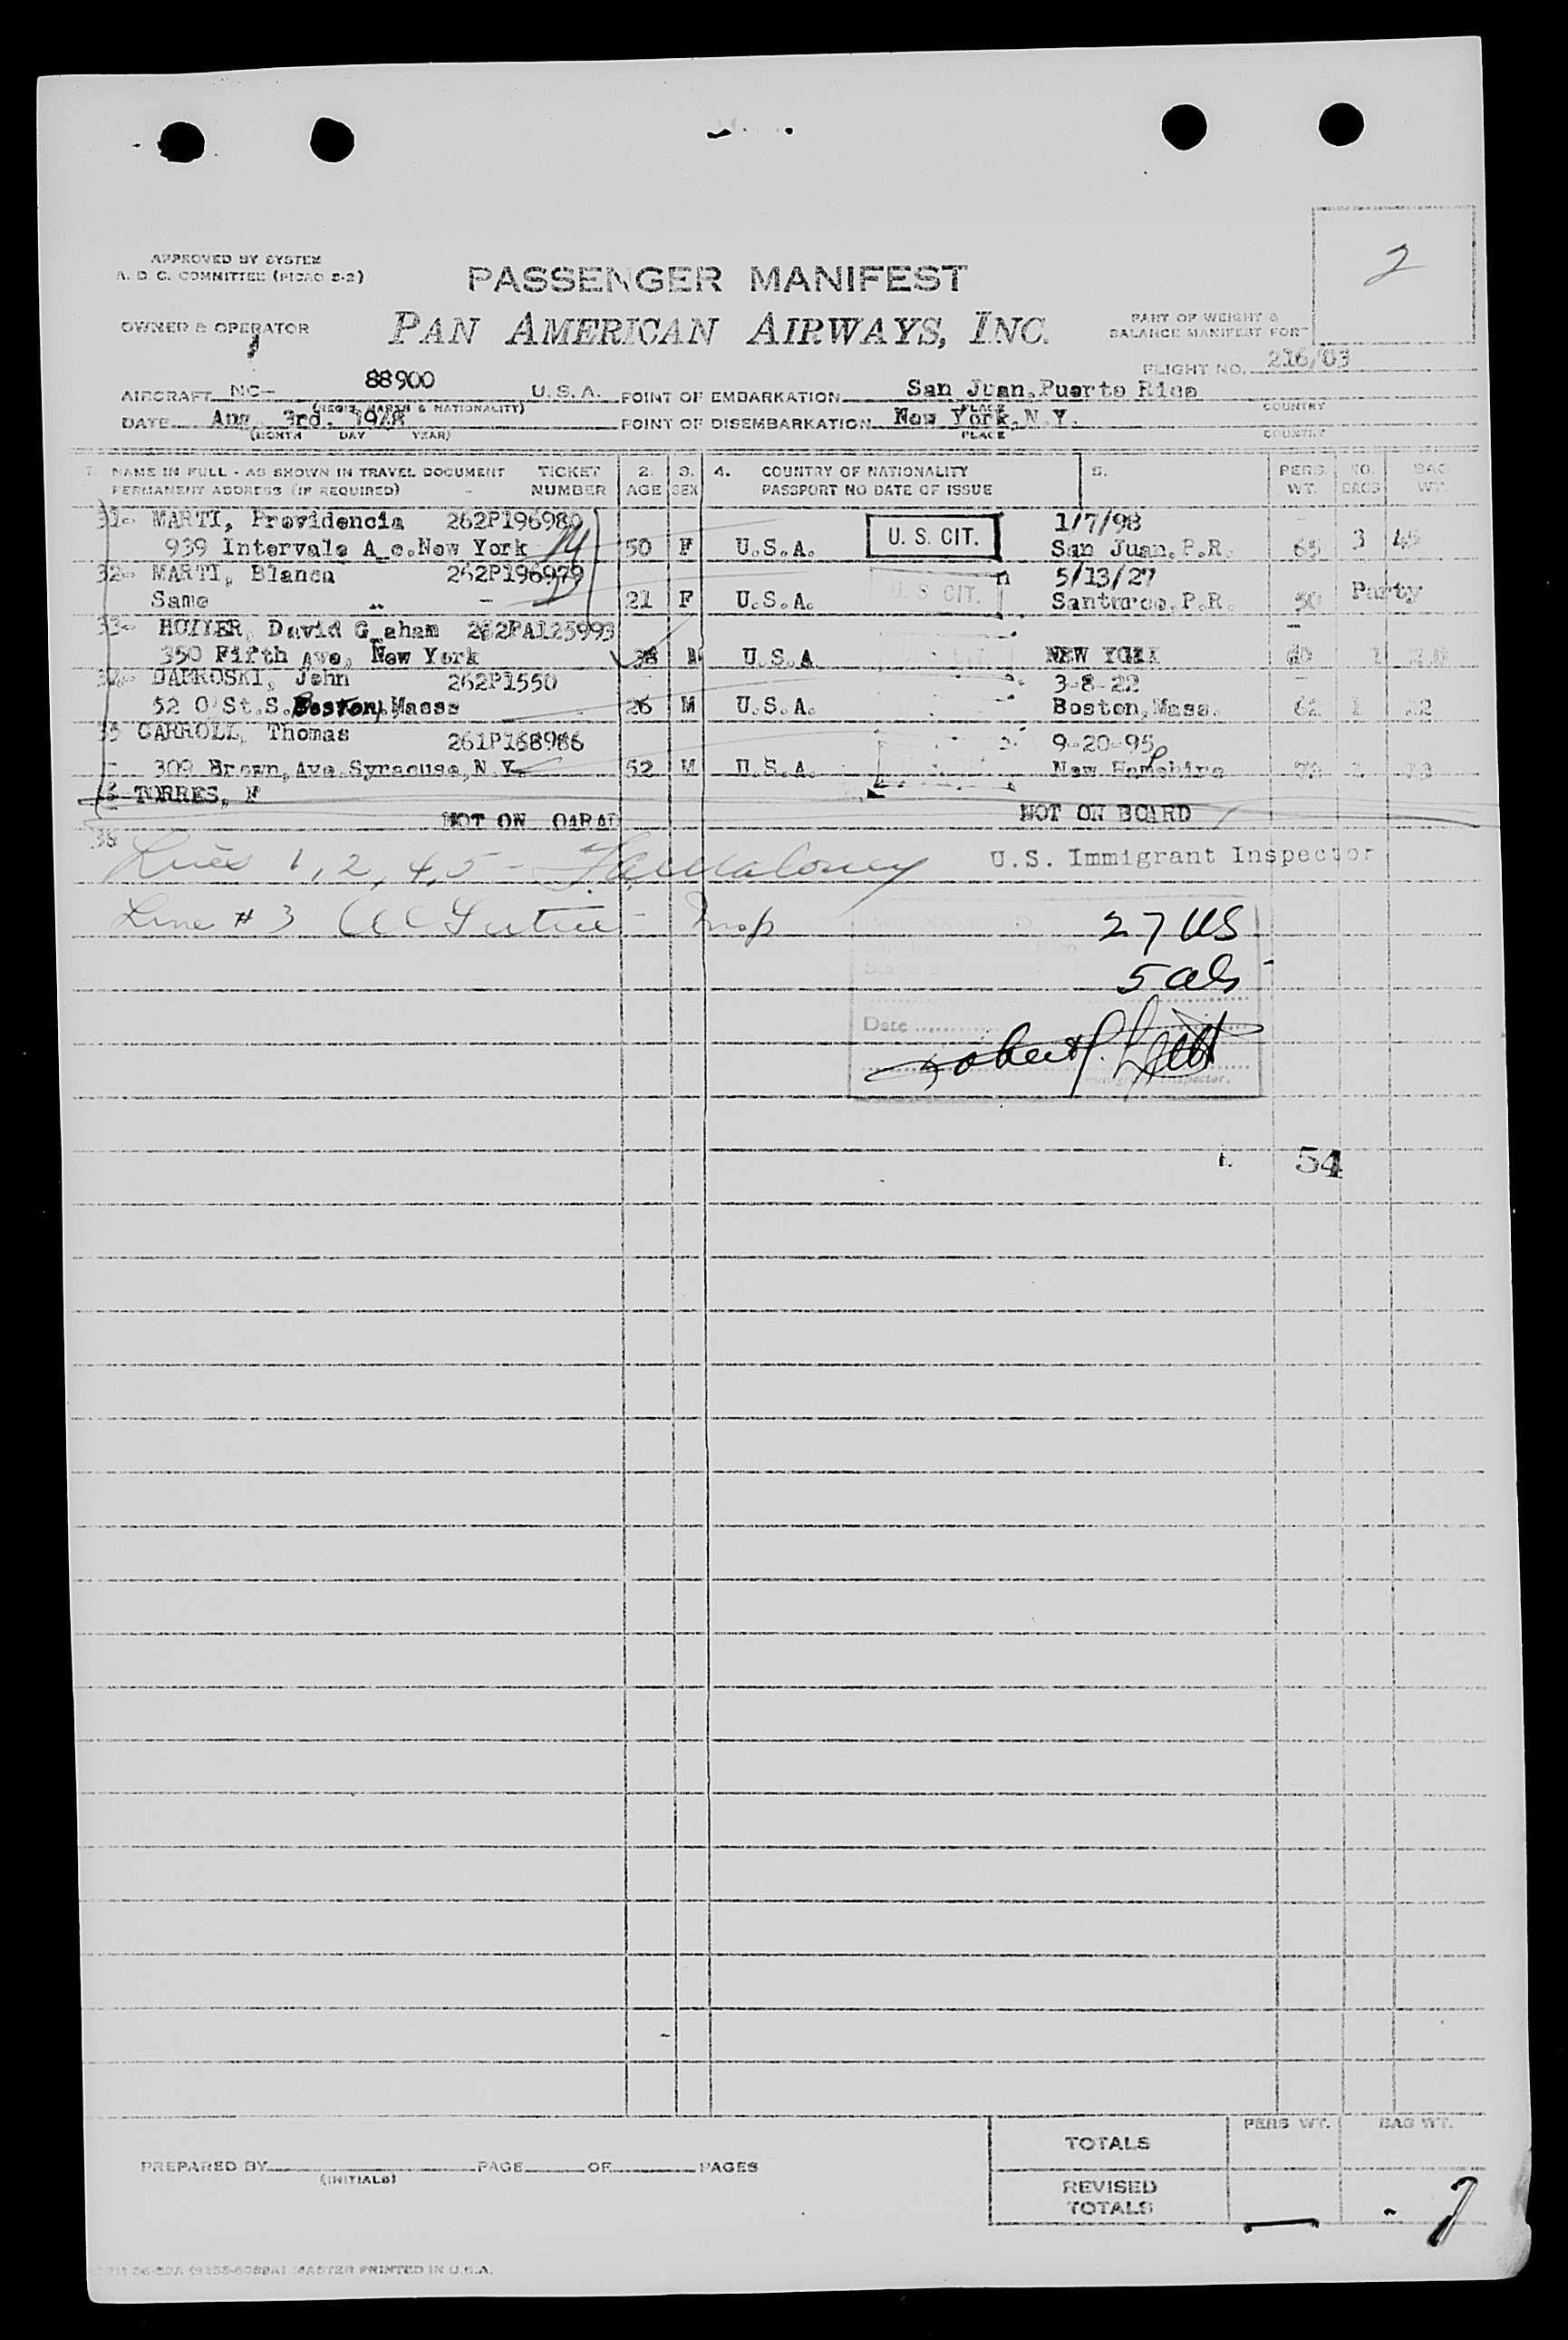 2
APPROVED BY SYSTEM
A. D. C. COMMITTEE (PICAO 2-2)
PASSENGER MANIFEST
OWNER & OPERATOR
PAN AMERICAN AIRWAYS, INC.
PART OF WEIGHT &
BALANCE MANIFEST FOR
FLIGHT NO. 216/03
AIRCRAFT NC- 88900 U.S.A. POINT OF EMBARKATION San Juan,Puerto Rico
(REGIS. MARKS & NATIONALITY) PLACE COUNTRY
DATE Aug. 3rd. 1948 POINT OF DISEMBARKATION New York,N.Y.
(MONTH DAY YEAR) PLACE COUNTRY
1. NAME IN FULL - AS SHOWN IN TRAVEL DOCUMENT TICKET 2. 3. 4. COUNTRY OF NATIONALITY 5. PERS. NO. BAG
PERMANENT ADDRESS (IF REQUIRED) NUMBER AGE SEX PASSPORT NO DATE OF ISSUE WT. BAGS WT.
31- MARTI, Providencia 262P196980 U. S. CIT. 1/7/98
939 Intervale A e.New York 50 F U.S.A. San Juan,P.R. 65 3 45
32- MARTI, Blanca 262P196979 U. S. CIT. 5/13/27
Same " - 21 F U.S.A. Santurce,P.R. 50 Party
33- David G aham 262PA125993
350 Fifth Ave, New York 38 M U.S.A NEW YORK 1
34- DAMROSKI, John 262P1550 3-8-22
52 O St.S.Boston,Masss 26 M U.S.A. Boston,Mass. 62 1
35 CARROLL, Thomas 261P168986 9-20-95
309 Brown,Ave.Syracuse,N.Y. 52 M U.S.A. New Hampshire
TORRES, F
NOT ON OARAD NOT ON BOARD
38
Lines 1, 2, 4, 5 - Maloney U.S. Immigrant Inspector
Line # 3 Insp
27 US
5 als
Date
Robert J.
Immigrant Inspector.
54
TOTALS PERS WT. BAG WT.
PREPARED BY PAGE OF PAGES
(INITIALS)
REVISED
TOTALS
MASTER PRINTED IN U.S.A.